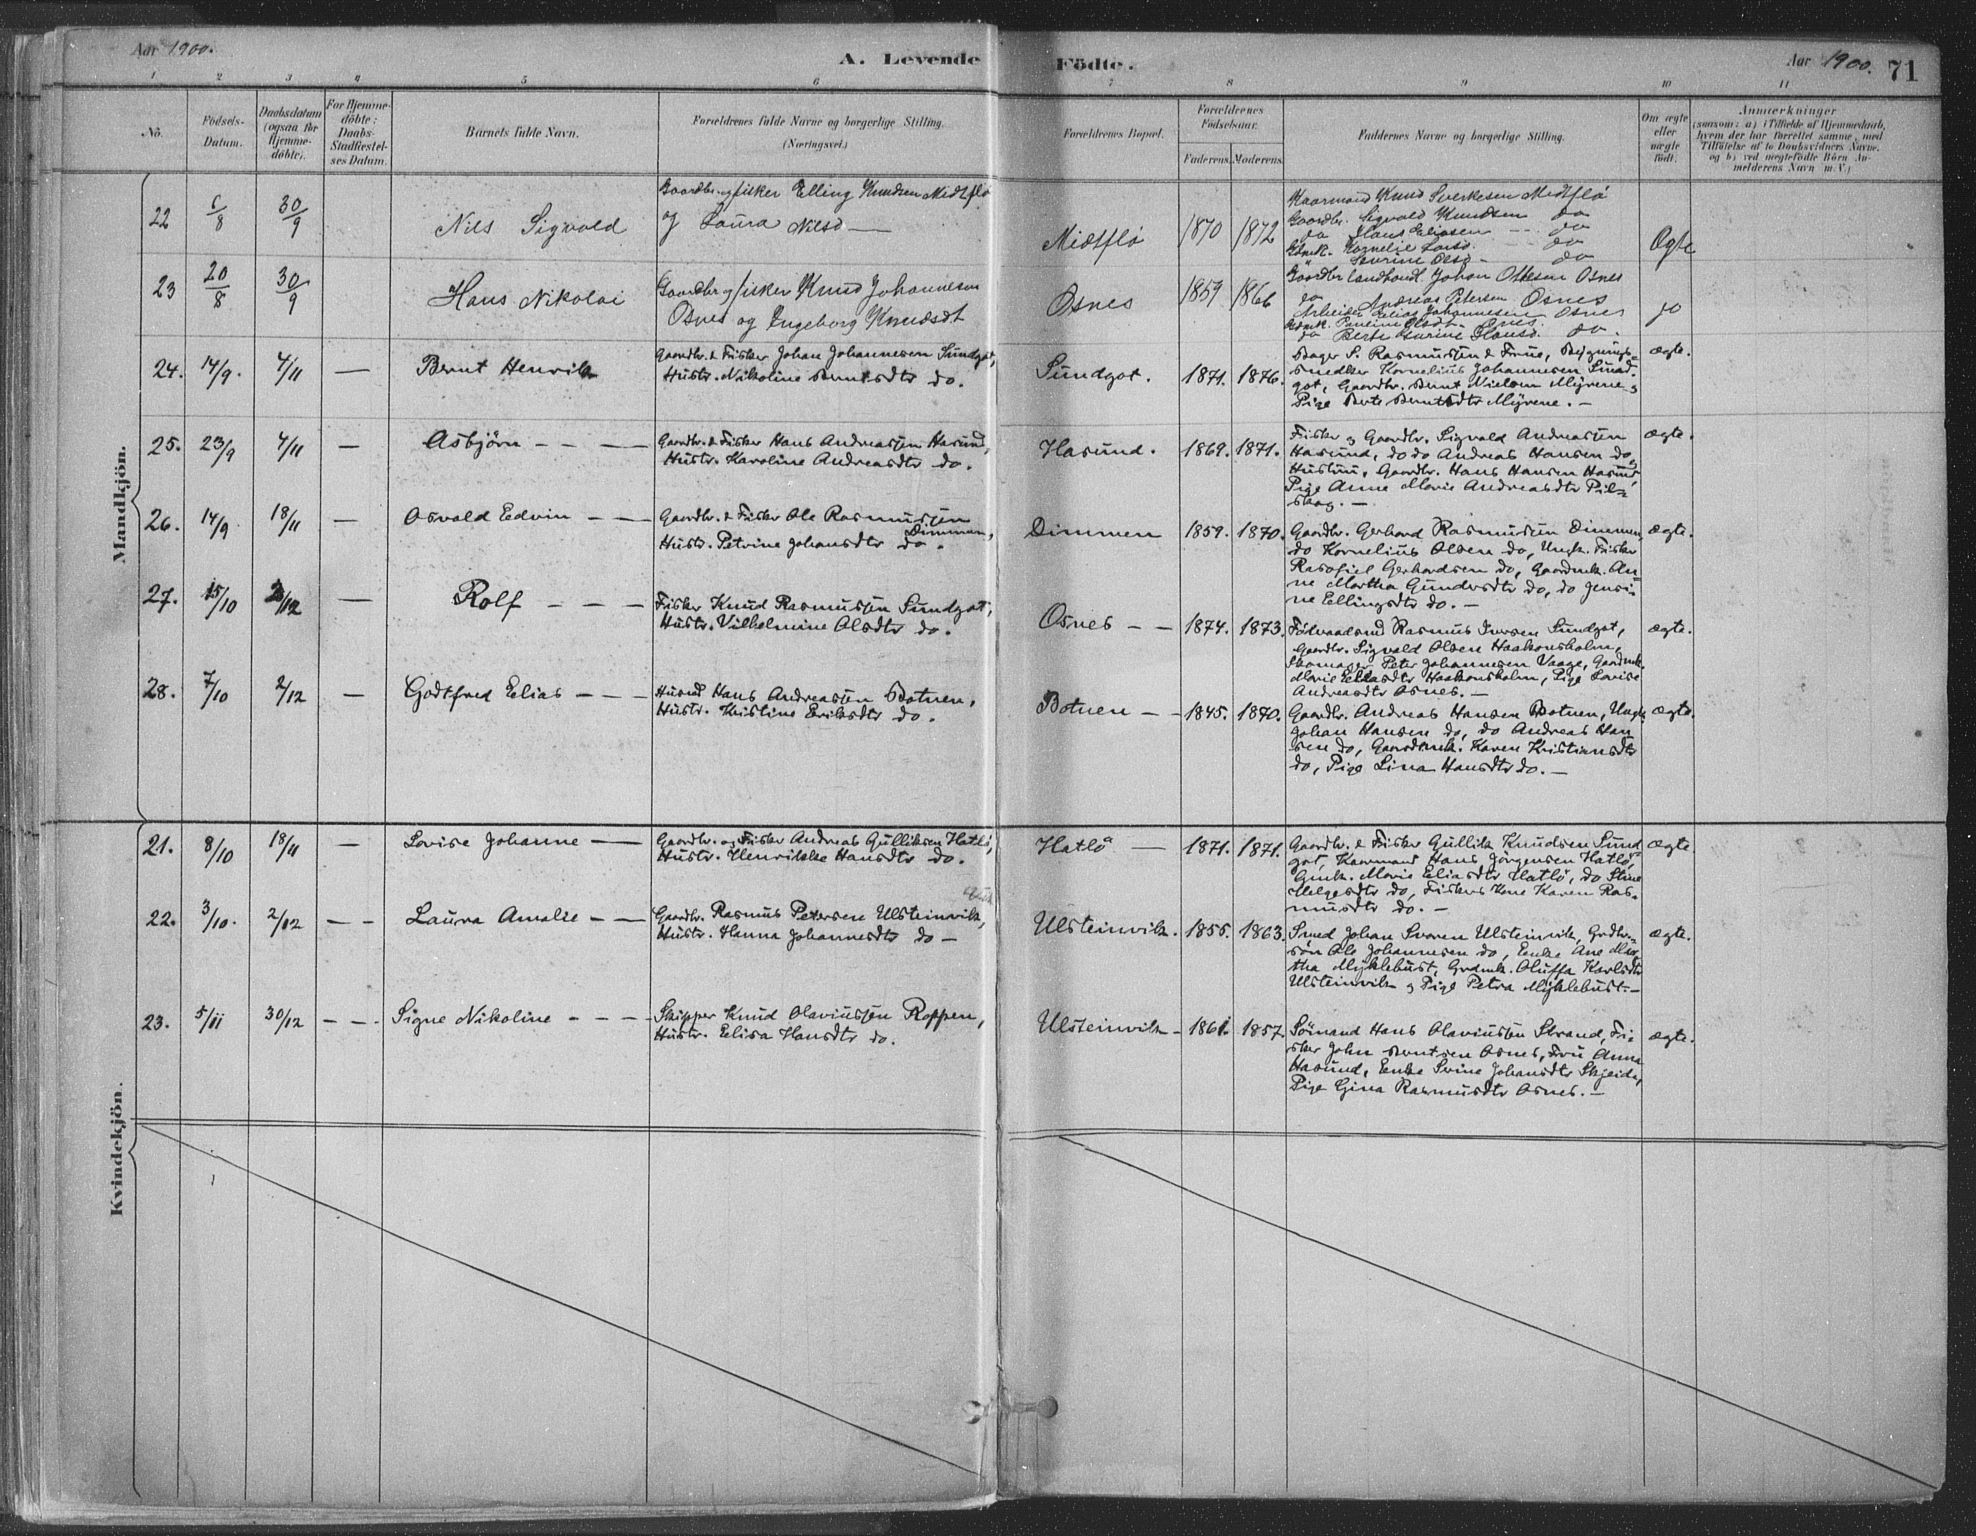 Aar 1900.
A. Levende Födte.
Aar 1900. 71
1 2 3 4 5 6 7 8 9 10 11
No.
Födsels-
Datum.
Daabsdatum
(ogsaa for
Hjemme-
döbte).
For Hjemme-
döbte:
Daabs-
Stadfæstel-
ses Datum.
Barnets fulde Navn.
Forældrenes fulde Navne og borgerlige Stilling.
(Næringsvei.)
Forældrenes Bopæl.
Forældrenes
Födselsaar.
Faderens. Moderens.
Faddernes Navne og borgerlige Stilling.
Om ægte
eller
uægte
født.
Anmærkninger
(saasom: a) i Tilfælde af Hjemmedaab,
hvem der har forrettet samme, med
Tilföielse af to Daabsvidners Navne,
og b) ved uægtefödte Börn An-
melderens Navn m. V.)
Mandkjön.
22 6/8 30/9 Nils Sigvald
Gaardbr. og fisker Elling Knudsen Midtflö
og Laura Nilsd —
Midtflö 1870 1872
Kaarmand Knud Sverkesen Midtflö
Gaardbr. Sigvald Knudsen do
do Hans Eliasen — do
Gdmk. Kornelie Larsd. — do
" Severine Olsd - do
Ægte
23 20/8 30/9 Hans Nikolai
Gaardbr og fisker Knud Johannesen
Osnes og Ingeborg Knudsdt
Osnes 1859 1866
Gaardbr landhand. Johan Ottesen Osnes
do Andreas Petersen Osnes
Arbeider Elias Johannesen Osnes
Gdmk. Olsdt. Osnes.
do Berte Hansd. do.
do
24. 14/9. 4/11 — Bernt Henrik
Gaardbr. & Fisker Johan Johannesen Sundgot,
Hustr. Nikoline Berntsdtr do.
Sundgot. 1871. 1876.
Bager S. Rasmussen & Frue, Bygnings-
snedker Kornelius Johannesen Sund-
got, Gaardbr. Bernt Nielsen Myrene,
Pige Berte Berntsdtr Myrene. —
ægte.
25. 23/9 4/11 — Asbjörn — — —
Gaardbr. & Fisker Hans Andreassen Hasund,
Hustr. Karoline Andreasdtr do.
Hasund. 1869. 1871.
Fisker og Gaardbr. Sigvald Andreassen
Hasund, do do Andreas Hansen do &
Hustru, Gaardbr. Hans Hansen Hasund,
Pige Anne Marie Andreasdtr Pil-
skog. —
ægte.
26. 14/9 18/11 — Osvald Edvin — —
Gaardbr. & Fisker Ole Rasmussen
Dimmen,
Hustr. Petrine Johansdtr do.
Dimmen 1859. 1870.
Gaardbr. Gerhard Rasmussen Dimmen,
do Kornelius Olsen do, Ungk. Fisker
Gerhardsen do, Gaardmk. An-
ne Martha Gundersdtr do, do Jensi-
ne Ellingsdtr do. —
ægte.
27. 15/10 2/12 — Rolf — — —
Fisker Knud Rasmussen Sundgot,
Hustr. Vilhelmine Olsdtr do.
Osnes — — 1874. 1873.
Föderaadsmd Rasmus Iversen Sundgot,
Gaardbr. Sigvald Olsen Haakonsholm,
Skomager Peter Johannesen Vaage, Gaardmk.
Marie Eliasdtr Haakonsholm, Pige Lovise
Andreasdtr Osnes. —
ægte.
28. 7/10 2/12 — Godtfred Elias — —
Husmd Hans Andreassen Botnen,
Hustr. Kristine Eriksdtr do.
Botnen — — 1845. 1870.
Gaardbr. Andreas Hansen Botnen, Ungk.
Johan Hansen do, do Andreas Han-
sen do, Gaardmk. Karen Kristiansdtr
do, Pige Lina Hansdtr do. —
ægte.
Kvindekjön.
21. 8/10 18/11 — Lovise Johanne —
Gaardbr. og Fisker Andreas Gulliksen Hatlö,
Hustr. Henrikke Hansdtr do.
Hatlö — 1871. 1871.
Gaardbr. & Fisker Gullik Knudsen Sund-
got, Kaarmand Hans Jörgensen Hatlö,
Gmk. Marie Eliasdtr Hatlö, do Stine
Helgesdtr do, Fiskers Kone Karen Ras-
musdtr do. —
ægte
22. 3/10. 2/12 — — Laura Amalie — —
Gaardbr. Rasmus Petersen Ulsteinvik,
Hustr. Hanna Johannesdtr do —
Ulsteinvik. 1855. 1863.
Smed Johan Svoren Ulsteinvik, Grdbr.-
sön Ole Johannesen do, Enke Ane Mar-
tha Myklebust, Grdmk. Oluffa Karlsdtr
Ulsteinvik og Pige Petra Myklebust. —
ægte.
23. 5/11 30/12 — — Signe Nikoline — — — —
Skipper Knud Olaviussen Roppen,
Hustr. Elisa Hansdtr do.
Ulsteinvik — 1861. 1857.
Sömand Hans Olaviussen Strand, Fi-
sker John Berntsen Osnes, Fru Anna
Hasund, Enke Svine Johansdtr Skjeide,
Pige Gina Rasmusdtr Osnes. —
ægte.